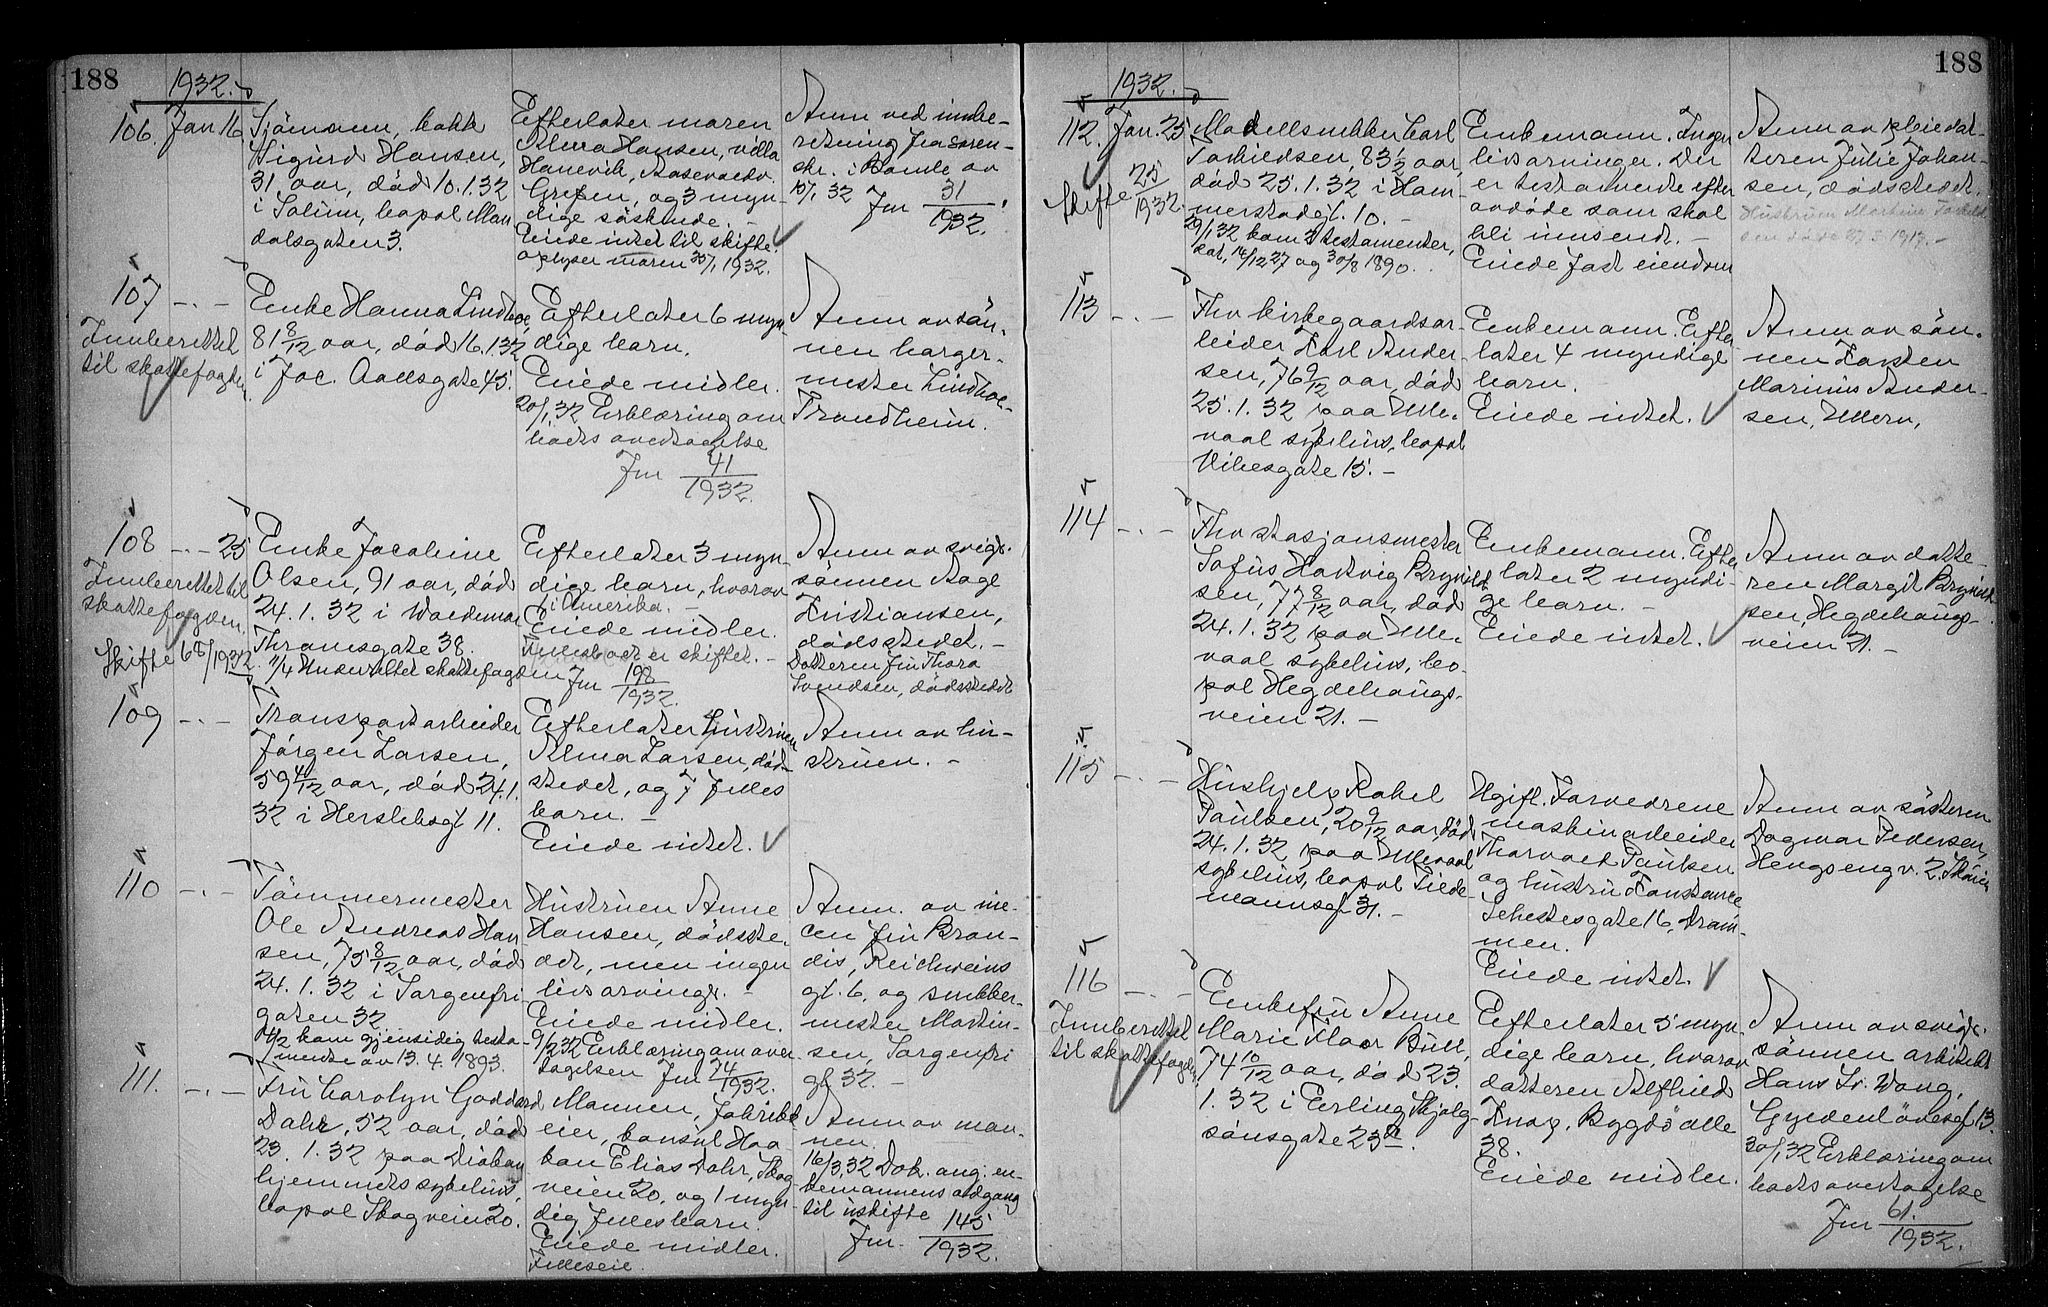 188
1932.
106. Jan 16. Sjömann, kokk
Sigurd Hansen,
31 aar, död 10.1.32
i Solum, bopel Man
dalsgaten 3.
Efterlater moren
Alma Hansen, villa
Hanevik, Aasevaedv.
Grefsen, og 3 myn-
dige söskende. -
Eiede intet til skifte
oplyser moren 30/1 1932.
Anm ved innbe-
retning fra soren-
skr. i Bamle av
10/1 32 Jnr 31/1932.
107 -.- Enke Hanna Lindboe,
81 8/12 aar, död 16.1.32
i Joc. Aallsgate 45.
Innberettet
til skattefogden
Efterlater 6 myn
dige barn.
Eiede midler.
20/1 32 Erklæring om
boets overtagelse
Jnr 41/1932.
Anm av sön-
nen borger-
mester Lindboe-
Trondheim.
108 -.- 25 Enke Jacobine
Olsen, 91 aar, död
24.1.32 i Waldemar
Thranesgate 38.
11/4 Underrettet skattefogden
Innberettet til
skattefogden.
Skifte 68/1932
Efterlater 3 myn-
dige barn, hvorav
i Amerika. -
Eiede midler.
Fellesboet er skiftet. -
Jnr 198/1932.
Anm av svigr.
sönnen Aage
Kristiansen,
dödsstedet. -
Datteren fru Thora
Svendsen, dödsstedet
109 -.- Transportarbeider
Jörgen Larsen,
59 4/12 aar, död 24.1.
32 i Herslebsgt 11.
Efterlater hustruen
Alma Larsen, död-
stedet, og 7 felles
barn. -
Eiede intet.
Anm av hu-
struen. -
110 -.- Tömmermester
Ole Andreas Han
sen, 75 8/12 aar, död
24.1.32 i Sorgenfri
gaten 32
4/2 kom gjensidig testa-
mente av 13.4.1893.
Hustruen Anne
Hansen, dödsste-
det, men ingen
livsarvinger. -
Eiede midler.
9/2 32 Erklæring om over
tagelsen Jnr 74/1932.
Anm. av nie-
cen fru Bran-
dis, Reichweins
gt. 6, og snekker-
mester Martin-
sen, Sorgenfri
gt 32. -
111. -.- Fru Carolyn Goddard
Dahr, 52 aar, död
23.1.32 paa Diakon
hjemmets sykehus,
bopel Skogveien 20.
Mannen, fabrikk
eier, konsul Haa
kon Elias Dahr, Skog
veien 20, og 1 myn-
dig fellesbarn.
Eiede midler.
Felleseie.
Anm av man-
nen.
16/3 32 Dok. ang. en-
kemannens adgang
til uskifte
Jnr. 145/1932.
188
1932.
112. Jan. 25 Modellsnekker Carl
Torkildsen, 83 1/2 aar,
död 25.1.32 i Ham
merstadgt. 10. -
29/1 32 kom 2 testamenter,
dat. 14/12 27 og 30/8 1890.
Skifte 25/1932.
Enkemann. Ingen
livsarvinger. Der
er testamente efter
avdöde som skal
bli innsendt. -
Eiede fast eiendom
Anm av pleiedat-
teren Julie Johan-
sen, dödsstedet.
Hustruen Martine Torkild
sen döde 27.5.1917. -
113 -.- Fhv kirkegaardsar-
beider Karl Ander
sen, 76 9/12 aar, död
25.1.32 paa Ulle-
vaal sykehus, bopel
Vibesgate 15. -
Enkemann. Efter
later 4 myndige
barn.
Eiede intet.
Anm av sön-
nen Karsten
Marinius Ander-
sen, Ullern,
114 -.- Fhv stasjonsmester
Sofus Hartvig Brynild
sen, 77 8/12 aar, död
24.1.32 paa Ulle-
vaal sykehus, bo-
pel Hegdehaugs-
veien 21. -
Enkemann. Efter
later 2 myndi-
ge barn. -
Eiede intet.
Anm av datte-
ren Margit Brynild
sen, Hegdehaugs-
veien 21. -
115 -.- Hushjelp Rakel
Paulsen, 20 9/12 aar, död
24.1.32 paa Ullevaal
sykehus, bopel Tiede-
mannsgt 31. -
Ugift. Forældrene
maskinarbeider
Thorvald Paulsen
og hustru Konstance
Sehestesgate 16, Dram-
men.
Eiede intet.
Anm av sösteren
Dagmar Pedersen,
Hengsengv. 2. Sköien
116 -.- Enkefru Anne
Marie Floor Bull,
74 10/12 aar, död 23.
1.32 i Erling Skjalg-
sönsgate 23 B.
Innberettet
til skattefogden
Efterlater 5 myn-
dige barn, hvorav
datteren Alfhild
Knap, Bygdö alle
38.
Eiede midler.
Anm av svigr.
sönnen arkitekt
Hans Sv. Wang,
Gyldenlövesgt 13.
30/1 32 Erklæring om
boets overtagelse
Jnr 61./1932.